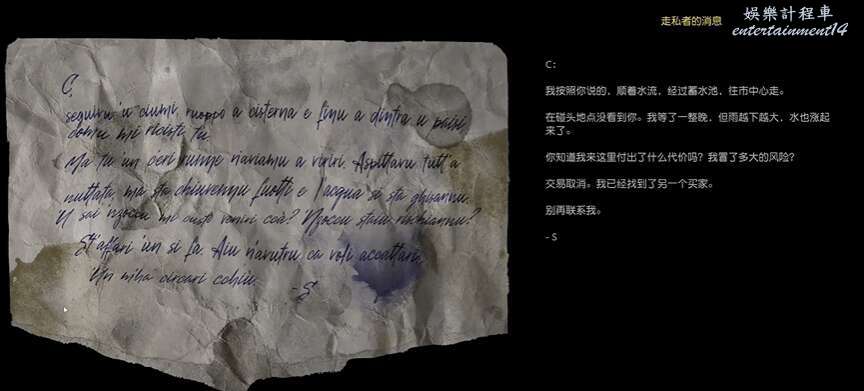 走私者的消息
娛樂計程車
entertainment14
C,
seguivu 'u ciumi, ruoppo a cisterna e finu a dintra u paisi
comu mi dicisti tu.
Ma tu 'un c'eri runni n'aviamu a viriri. Aspittavu tutt'a
nuttata, ma sta chiuvennu fuotti e l'acqua si sta ghisannu.
U sai nzoccu mi custò veniri ccà? Nzoccu staiu rischiannu?
St'affari 'un si fa. Aiu n'avutru ca voli accattari.
Un miha circari cchiù.
-S
C：
我按照你说的，顺着水流，经过蓄水池，往市中心走。
在碰头地点没看到你。我等了一整晚，但雨越下越大，水也涨起
来了。
你知道我来这里付出了什么代价吗？我冒了多大的风险？
交易取消。我已经找到了另一个买家。
别再联系我。
- S